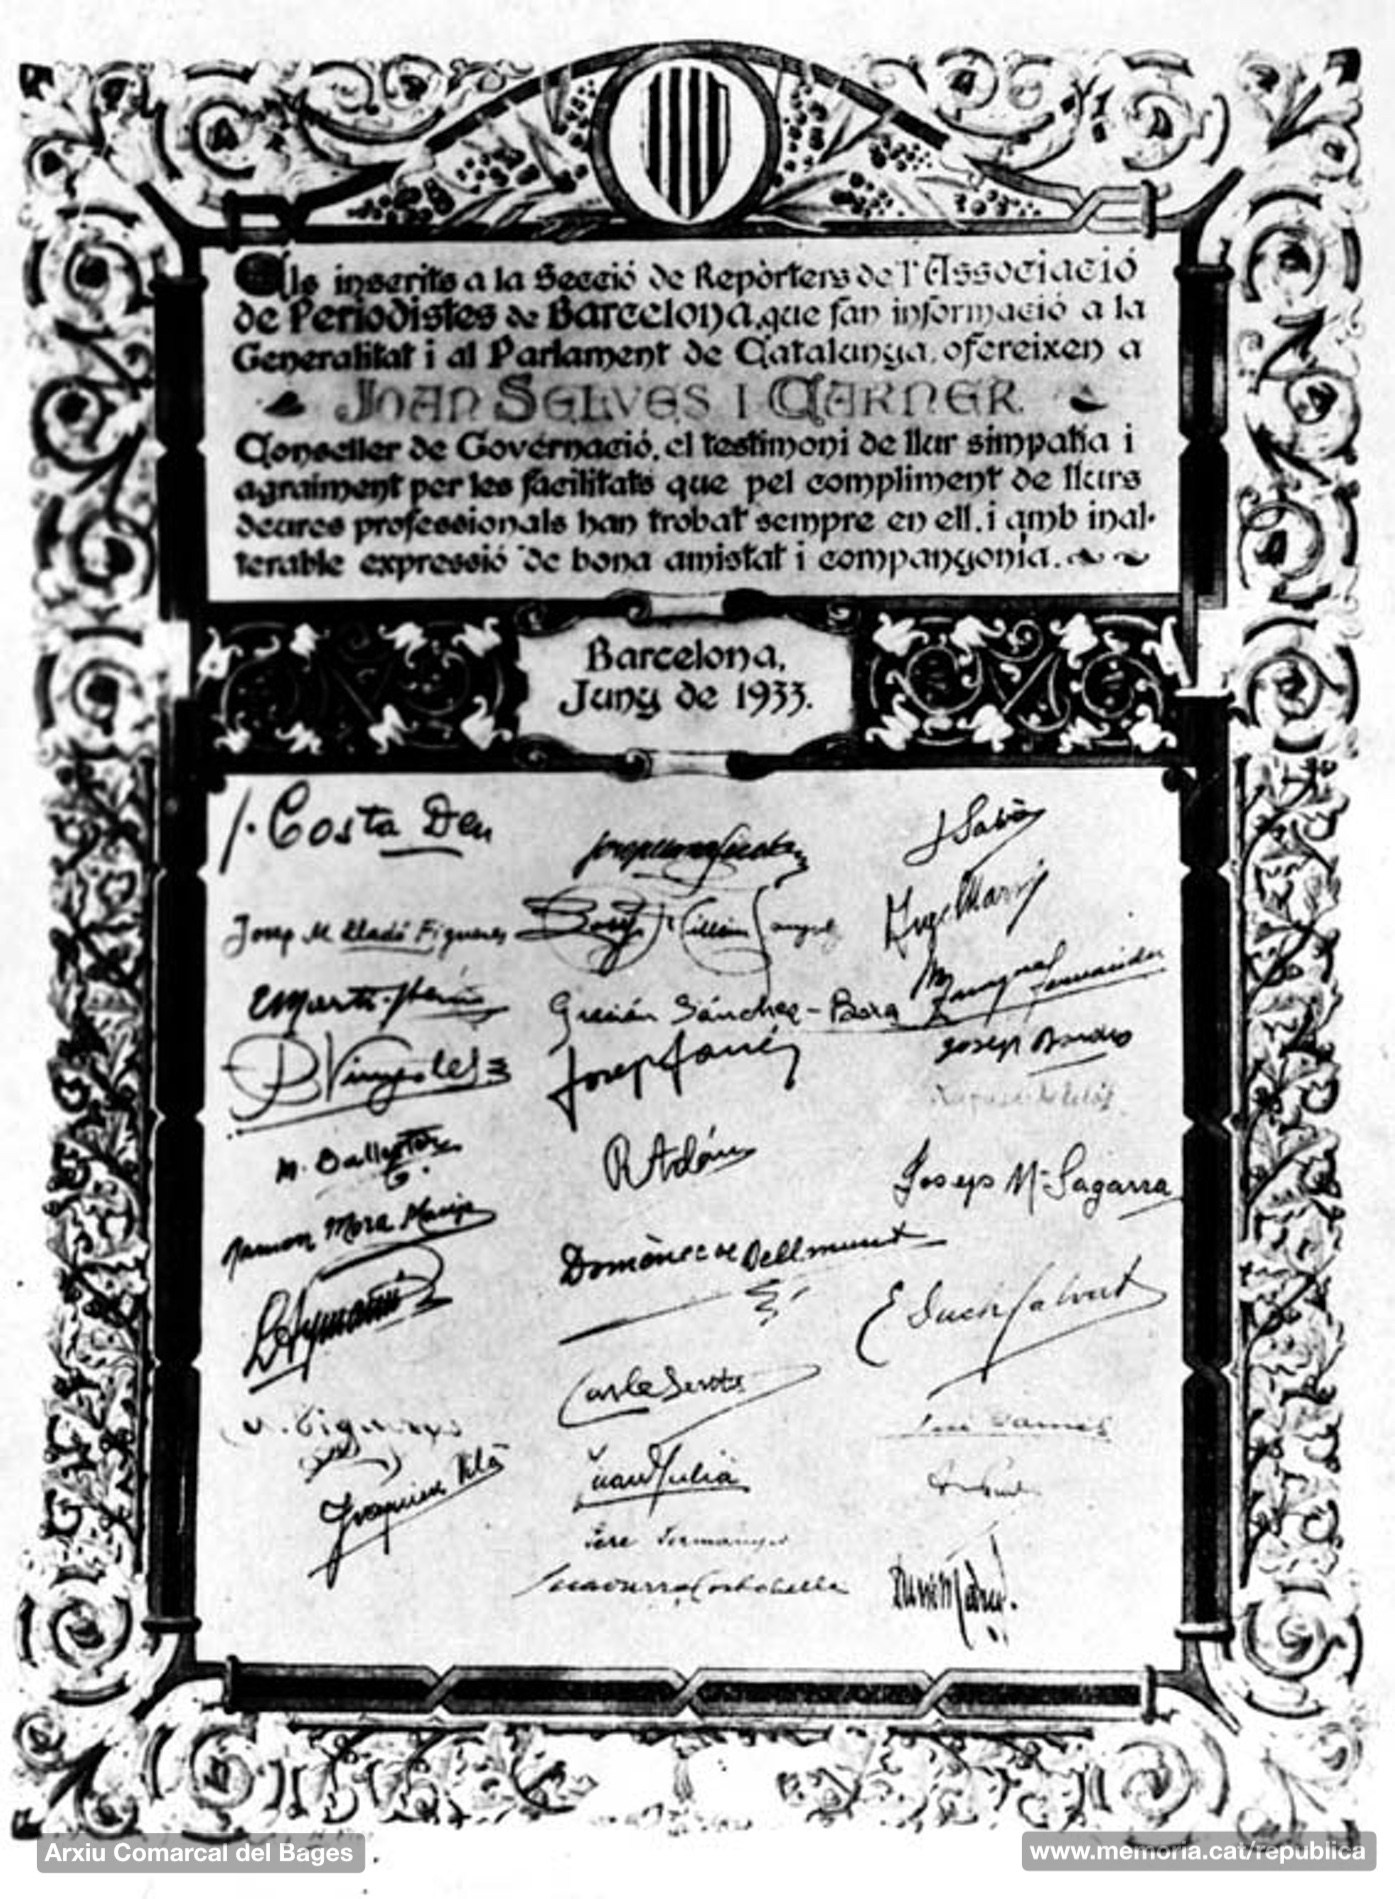 Els inscrits a la Secció de Repòrters de l'Associació
de Periodistes de Barcelona, que fan informació a la
Generalitat i al Parlament de Catalunya, ofereixen a
JOAN SELVES I CARNER
Conseller de Governació, el testimoni de llur simpatia i
agraïment per les facilitats que pel compliment de llurs
deures professionals han trobat sempre en ell, i amb inal-
terable expressió de bona amistat i companyonia.
Barcelona,
Juny de 1933.
J. Costa Deu
Josep M Lladó Figueres
B Vinyoles
M. Ballester
Ramon Mora
Aymamí
Joaquim Vilà
Gracián Sánchez-Boxa
Josep Janés
R Adán
Domènec de Bellmunt
Carles Sentís
Juan Julià
Pere
J Sabà
Angel Marsà
Fernández
Josep
Josep Mª Sagarra
E Calvet
Arxiu Comarcal del Bages
www.memoria.cat/republica